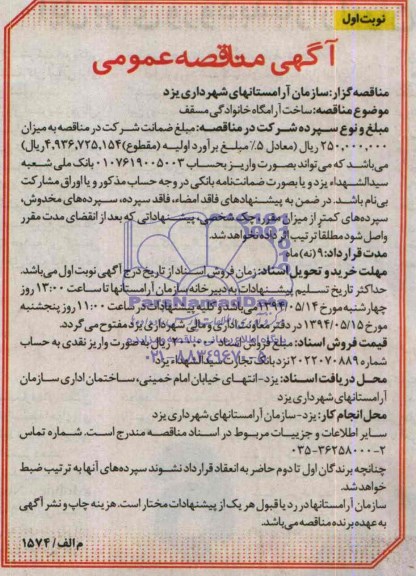 نوبت اول
آگهی مناقصه عمومی
مناقصه گزار: سازمان آرامستانهای شهرداری یزد
موضوع مناقصه: ساخت آرامگاه خانوادگی مسقف
مبلغ و نوع سپرده شرکت در مناقصه: مبلغ ضمانت شرکت در مناقصه به میزان
۲۵۰,۰۰۰,۰۰۰ ریال (معادل ۵٪ مبلغ برآورد اولیه (مقطوع) ۴,۹۳۶,۷۲۵,۱۵۴ ریال)
می‌باشد که می‌تواند بصورت واریز بحساب ۰۱۰۷۶۱۹۰۰۵۰۰۳ بانک ملی شعبه
سیدالشهداء یزد و یا بصورت ضمانت‌نامه بانکی در وجه حساب مذکور و یا اوراق مشارکت
بی‌نام باشد. در ضمن به پیشنهادهای فاقد امضاء، فاقد سپرده، سپرده‌های مخدوش،
سپرده‌های کمتر از میزان مقرر، چک شخصی، پیشنهاداتی که بعد از انقضای مدت مقرر
واصل شود مطلقا ترتیب اثر داده نخواهد شد.
مدت قرارداد: ۹ (نه) ماه
مهلت خرید و تحویل اسناد: زمان فروش اسناد از تاریخ درج آگهی نوبت اول می‌باشد.
حداکثر تاریخ تسلیم پیشنهادات به دبیرخانه سازمان آرامستانها تا ساعت ۱۳:۰۰ روز
چهارشنبه مورخ ۱۳۹۴/۰۵/۱۴ می‌باشد و کلیه پیشنهادات در ساعت ۱۱:۰۰ روز پنجشنبه
مورخ ۱۳۹۴/۰۵/۱۵ در دفتر معاونت اداری و مالی شهرداری یزد مفتوح می‌گردد.
قیمت فروش اسناد: مبلغ فروش اسناد ریال به صورت واریز نقدی به حساب
شماره ۲۰۲۲۰۷۰۸۸۹ نزد بانک تجارت سیدالشهداء یزد
محل دریافت اسناد: یزد-انتهای خیابان امام خمینی، ساختمان اداری سازمان
آرامستانهای شهرداری یزد
محل انجام کار: یزد-سازمان آرامستانهای شهرداری یزد
سایر اطلاعات و جزییات مربوط در اسناد مناقصه مندرج است. شماره تماس
۰۳۵-۳۶۲۵۸۰۰۰-۲
چنانچه برندگان اول تا دوم حاضر به انعقاد قرارداد نشوند سپرده‌های آنها به ترتیب ضبط
خواهد شد.
سازمان آرامستانها در رد یا قبول هر یک از پیشنهادات مختار است. هزینه چاپ و نشر آگهی
به عهده برنده مناقصه می‌باشد.
م الف/ ۱۵۷۴
ParsNamadData
۰۲۱-۸۸۳۴۹۶۷۰-۵